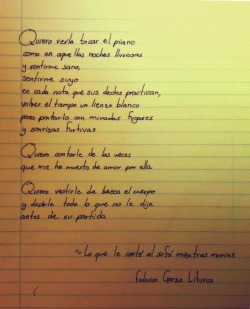 Quiero verla tocar el piano
como en aquellas noches lluviosas
y sentirme sano,
sentirme suyo
en cada nota que sus dedos practican,
volver el tiempo un lienzo blanco
para pintarlo con miradas fugaces
y sonrisas furtivas
Quiero contarle de las veces
que me he muerto de amor por ella.
Quiero vestirle de besos el cuerpo
y decirle todo lo que no le dije
antes de su partida.
~Lo que le conté al sofá mientras morías
Federico Garza